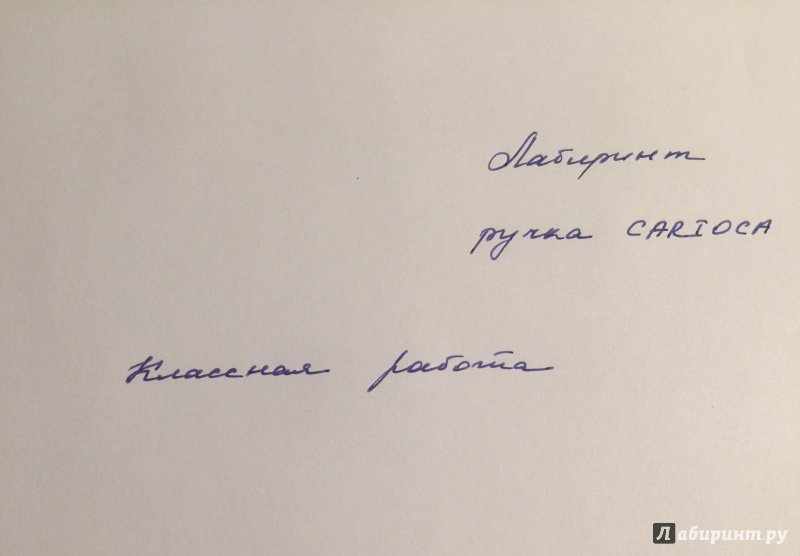 Лабиринт
ручка CARIOCA
Классная работа
Лабиринт.ру